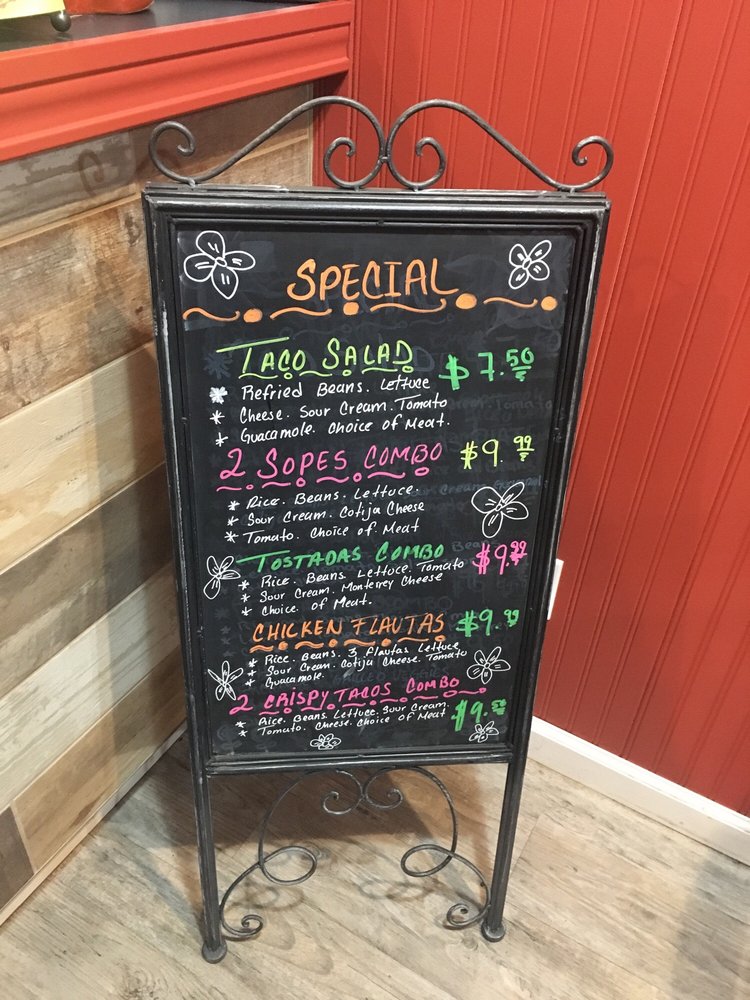 SPECIAL
TACO SALAD $7.50
* Refried Beans. Lettuce
* Cheese. Sour Cream. Tomato
* Guacamole. Choice of Meat.
2 SOPES COMBO $9.99
* Rice. Beans. Lettuce.
* Sour Cream. Cotija Cheese
* Tomato. Choice of Meat
TOSTADAS COMBO $9.99
* Rice. Beans. Lettuce. Tomato
* Sour Cream. Monterrey Cheese
* Choice of Meat.
CHICKEN FLAUTAS $9.99
* Rice. Beans. 3 Flautas Lettuce
* Sour Cream. Cotija Cheese. Tomato
* Guacamole.
2 CRISPY TACOS COMBO
* Rice. Beans. Lettuce. Sour Cream.
* Tomato. Cheese. Choice of Meat